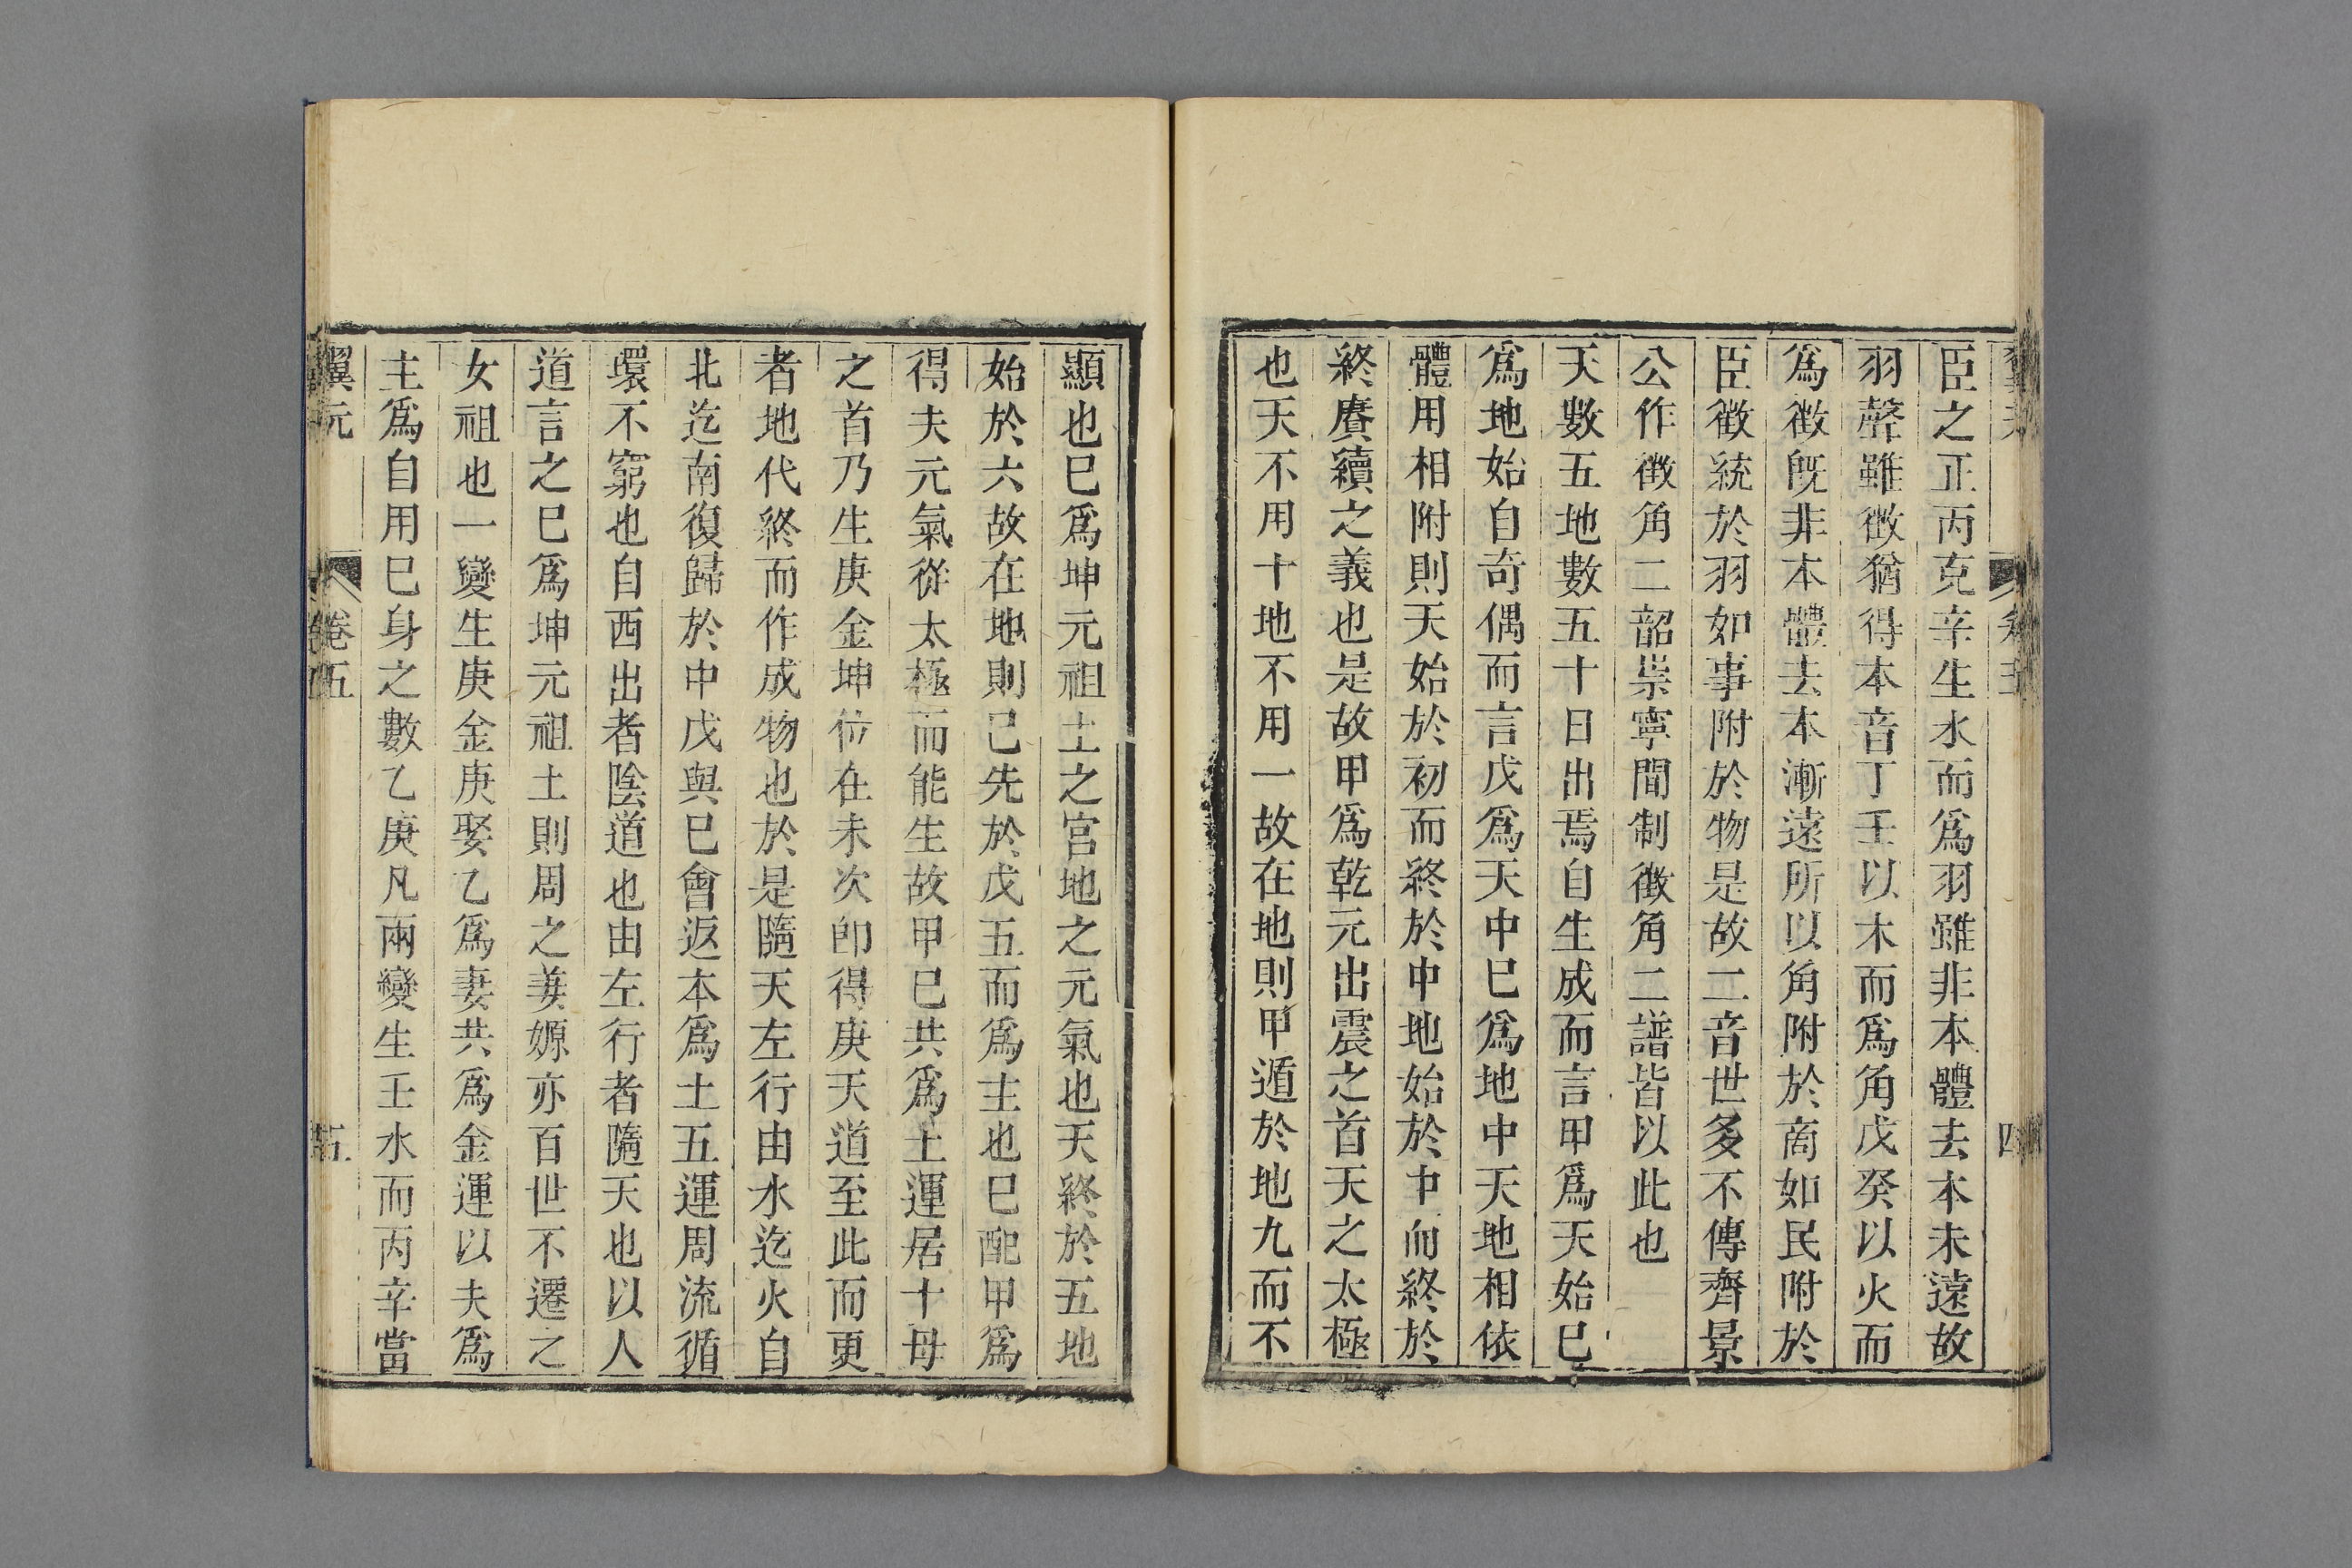 臣之正丙克辛生水而爲羽雖非本體去本未遠故
羽聲雖微猶得本音丁壬以木而爲角戊癸以火而
爲徵旣非本體去本漸遠所以角附於商如民附於
臣徵統於羽如事附於物是故二音世多不傳齊景
公作徵角二韶崇寧間制徵角二譜皆以此也
天數五地數五十日出焉自生成而言甲爲天始巳
爲地始自奇偶而言戊爲天中巳爲地中天地相依
體用相附則天始於初而終於中地始於中而終於
終賡續之義也是故甲爲乾元出震之首天之太極
也天不用十地不用一故在地則甲遁於地九而不
顯也巳爲坤元祖土之宮地之元氣也天終於五地
始於六故在地則己先於戊五而爲主也巳配甲爲
得夫元氣從太極而能生故甲巳共爲土運居十母
之首乃生庚金坤位在未次卽得庚天道至此而更
者地代終而作成物也於是隨天左行由水迄火自
北迄南復歸於中戊與巳會返本爲土五運周流循
環不窮也自西出者陰道也由左行者隨天也以人
道言之巳爲坤元祖土則周之姜嫄亦百世不遷之
女祖也一變生庚金庚娶乙爲妻共爲金運以夫爲
主爲自用巳身之數乙庚凡兩變生壬水而丙辛當
翼元
卷五
五